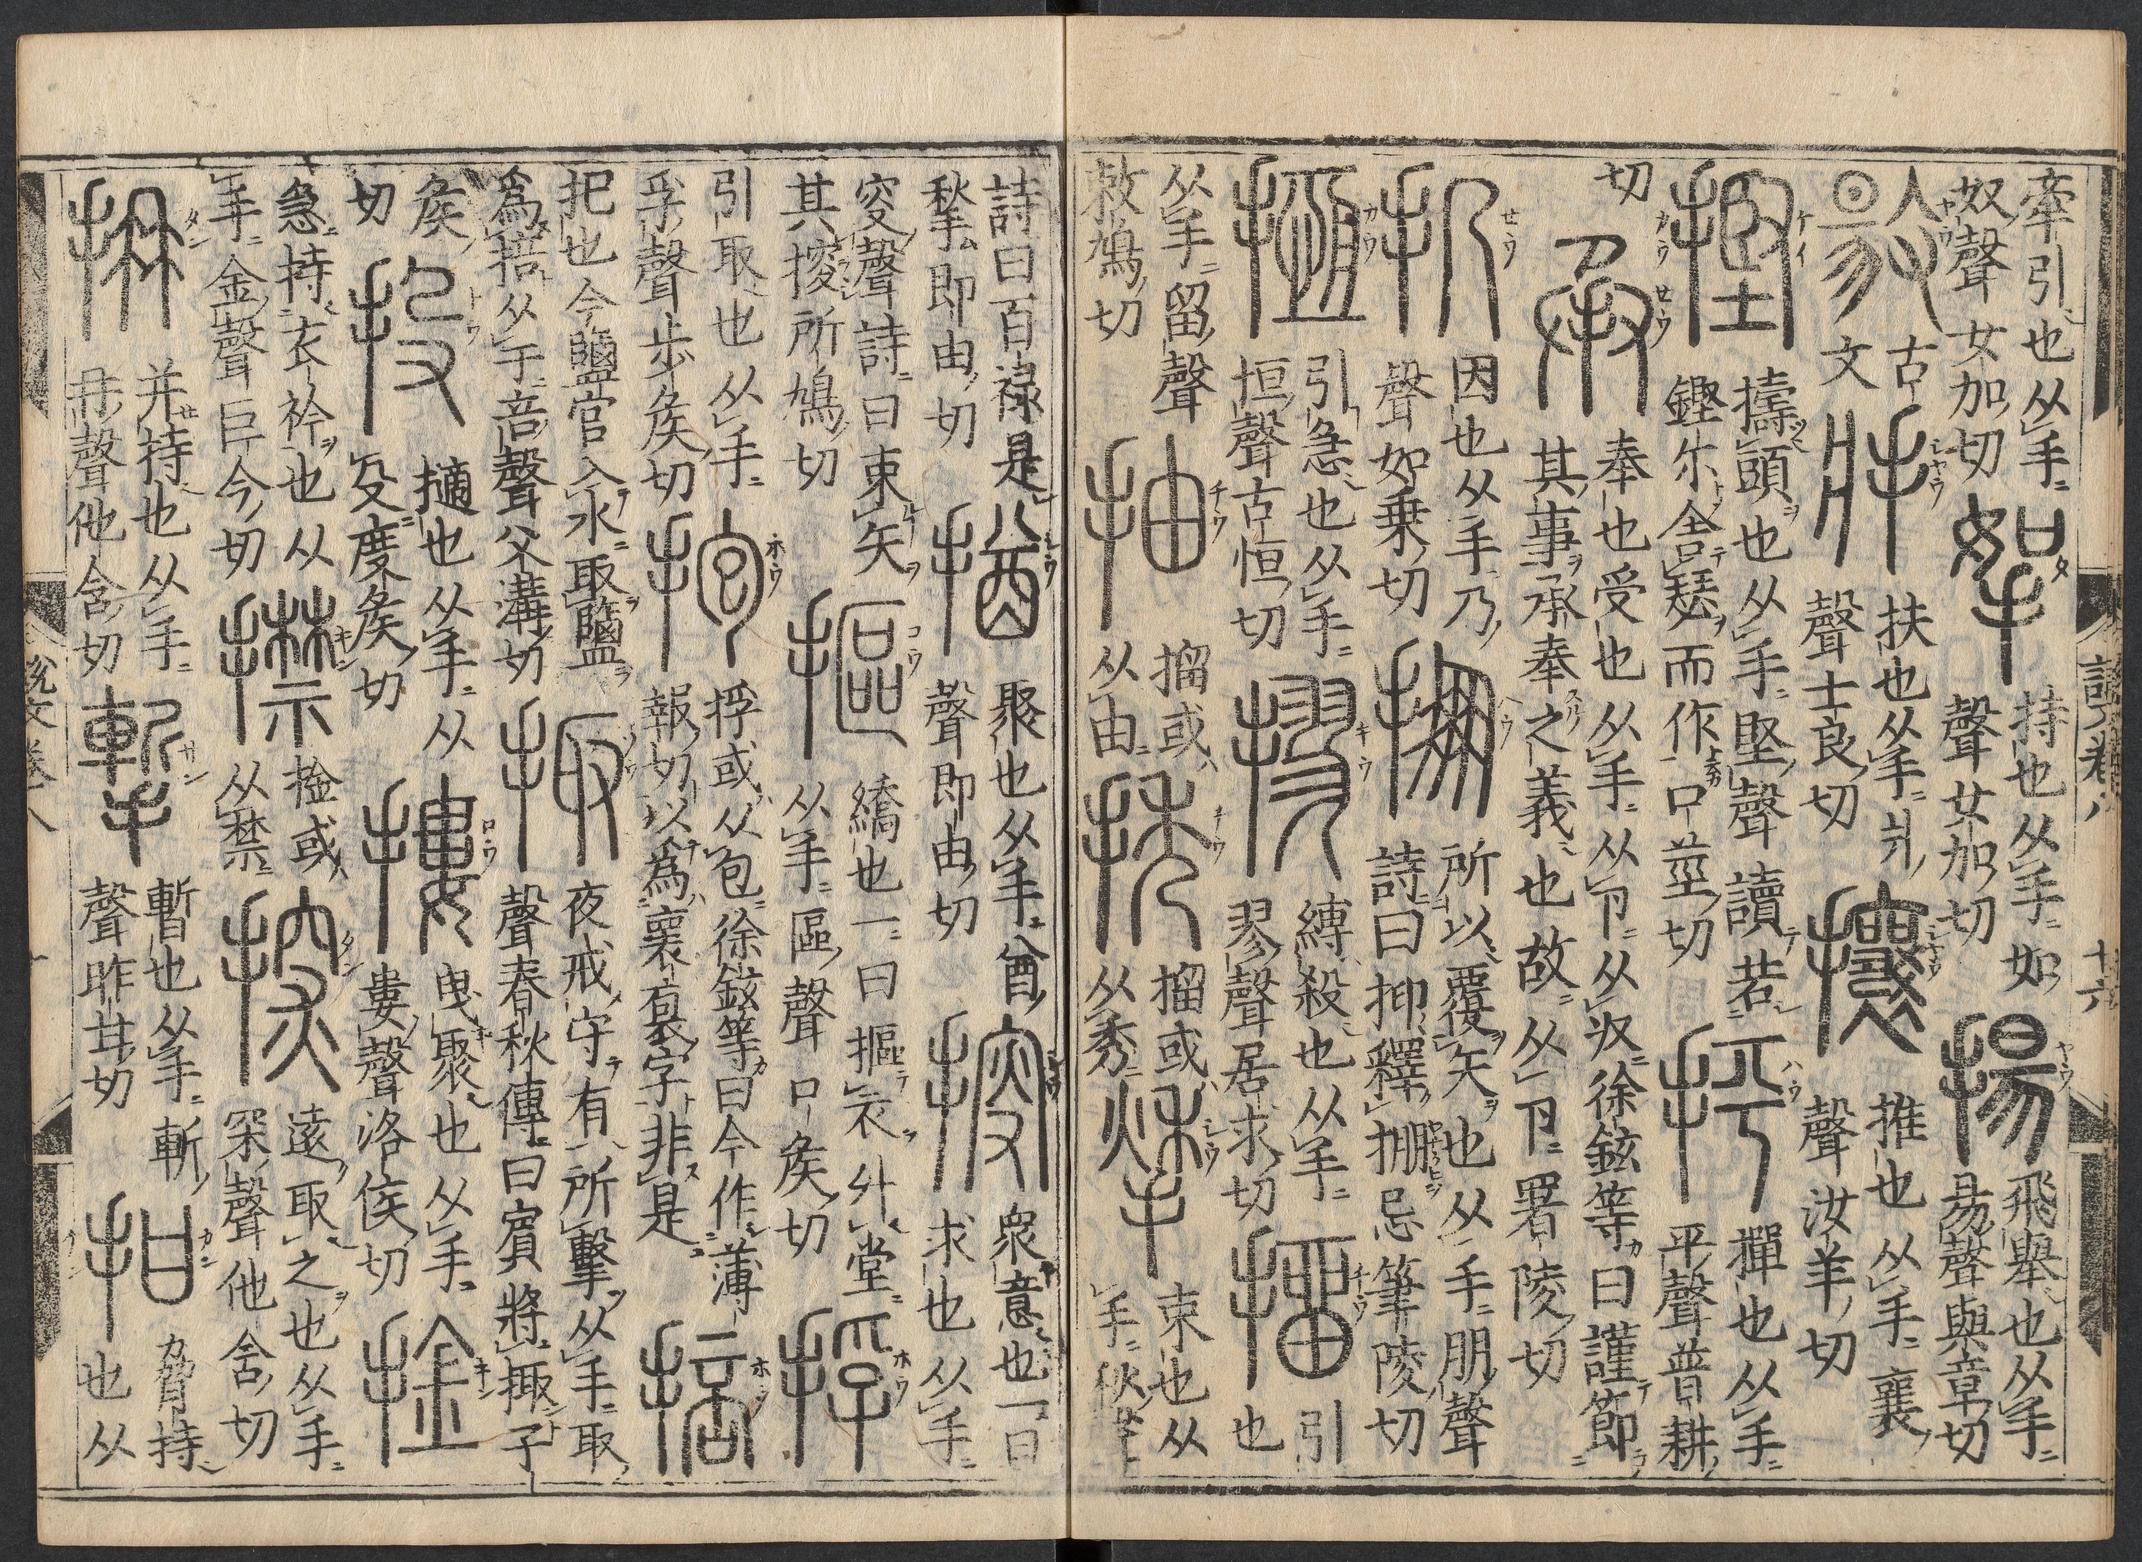 牽引也从手奴聲女加切 挐 持也从手如聲女加切 揚 飛舉也从手昜聲與章切
敭 古文 扶也从手爿聲士良切 攘 推也从手襄聲汝羊切
摼 擣頭也从手堅聲讀若鏗尔舍瑟而作口莖切 抨 撣也从手平聲普耕
切 承 奉也受也从手从卪从収徐鉉等曰謹節其事承奉之義也故从卪署陵切
扔 因也从手乃聲如乗切 掤 所以覆矢也从手朋聲詩曰抑釋掤忌筆陵切
搄 引急也从手恒聲古恒切 摎 縛殺也从手翏聲居求切 㨨 引也
从手留聲敕鳩切 抽 㨨或从由 㨨或从秀 揫 束也从手秋聲
説文卷八 十六
詩曰百禄是揫即由切 揂 聚也从手酋聲即由切 搜 衆意也一曰求也从手
叜聲詩曰束矢其搜所鳩切 摳 繑也一曰摳衣外堂从手區聲口矦切 捊
引取也从手孚聲步矦切 抱 捊或从包徐鉉等曰今作薄報切以為褱袌字非是 掊
把也今鹽官入水取鹽為掊从手咅聲父溝切 掫 夜戒守有所擊从手取聲春秋傳曰賓將掫子
矦切 投 擿也从手从殳度矦切 摟 曳聚也从手婁聲洛侯切 捦
急持衣衿也从手金聲巨今切 捦或从禁 探 遠取之也从手罙聲他含切
抩 并持也从手冉聲他含切 摲 暫也从手斬聲昨甘切 拑 脅持也从
説文卷八